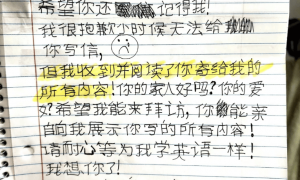 希望你还记得我!
我很抱歉小时候无法给
你写信,
但我收到并阅读了你寄给我的
所有内容!你的家人好吗?你的爱
好?希望我能来拜访,你能亲
自向我展示你写的所有内容!
请耐心等为我学英语一样!
我想你了!